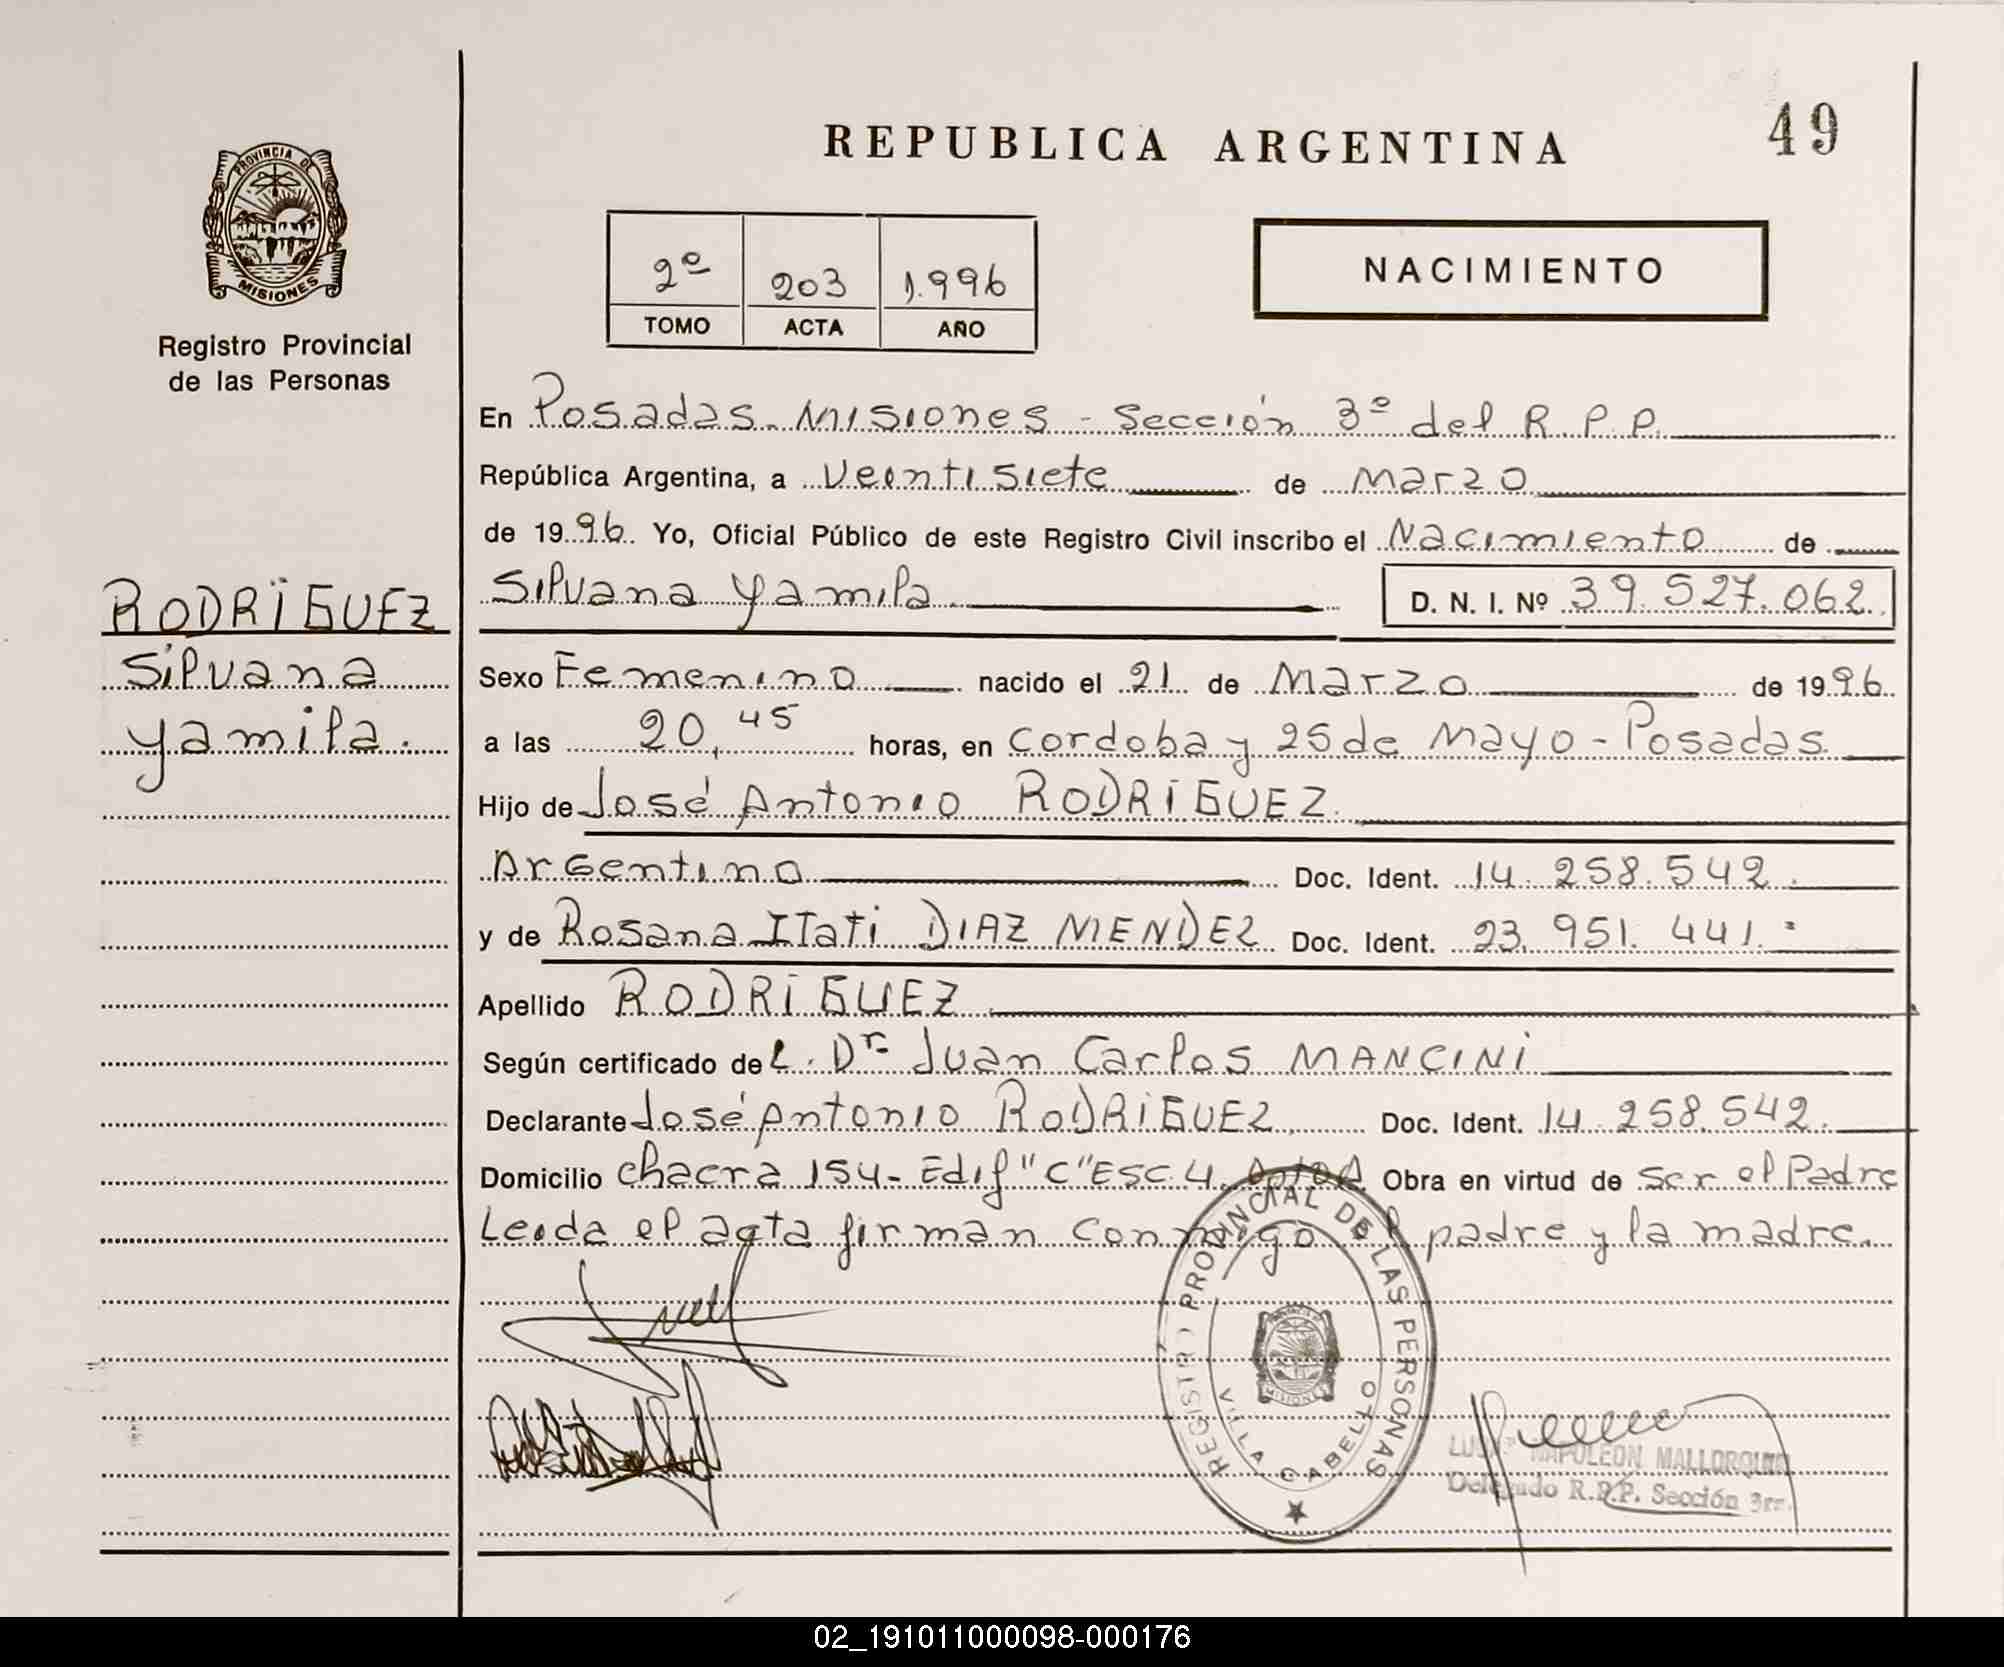 REPUBLICA ARGENTINA
49
PROVINCIA DE
MISIONES
Registro Provincial
de las Personas
2º 203 1.996
TOMO ACTA AÑO
NACIMIENTO
En Posadas. Misiones - Sección 3º del R.P.P.
República Argentina, a Veintisiete de Marzo
de 1996. Yo, Oficial Público de este Registro Civil inscribo el Nacimiento de
Silvana Yamila D. N. I. Nº 39.527.062.
RODRIGUEZ
Silvana
Yamila.
Sexo Femenino nacido el 21 de Marzo de 1996.
a las 20,45 horas, en Cordoba y 25 de Mayo - Posadas.
Hijo de José Antonio RODRIGUEZ.
Argentino Doc. Ident. 14.258.542.
y de Rosana Itati DIAZ MENDEZ Doc. Ident. 23.951.441.-
Apellido RODRIGUEZ
Según certificado del. Dr. Juan Carlos MANCINI
Declarante José Antonio RODRIGUEZ. Doc. Ident. 14.258.542.
Domicilio Chacra 154- Edif "C" Esc. 4 Obra en virtud de ser el Padre
Leida el acta firman conmigo el padre y la madre.
REGISTRO PROVINCIAL DE LAS PERSONAS
VILLA CABELLO
PROVINCIA DE
MISIONES
NAPOLEON MALLORQUIN
Delegado R.P.P. Sección 3ra.
02_191011000098-000176